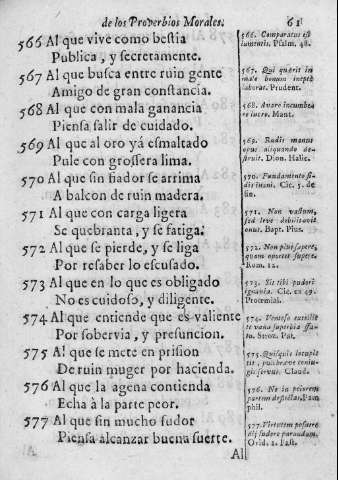 de los Proverbios Morales. 61
566 Al que vive como bestia
Publica, y secretamente.
567 Al que busca entre ruin gente
Amigo de gran constancia.
568 Al que con mala ganancia
Piensa salir de cuidado.
569 Al que al oro yá esmaltado
Pule con grossera lima.
570 Al que sin fiador se arrima
A balcon de ruin madera.
571 Al que con carga ligera
Se quebranta, y se fatiga.
572 Al que se pierde, y se liga
Por resaber lo escusado.
573 Al que en lo que es obligado
No es cuidoso, y diligente.
574 Al que entiende que es valiente
Por sobervia, y presuncion.
575 Al que se mete en prision
De ruin muger por hacienda.
576 Al que la agena contienda
Echa à la parte peor.
577 Al que sin mucho sudor
Piensa alcanzar buena suerte.
Al
566. Comparatus est
iumentis. Psalm. 48.
567. Qui quærit in
malo bonum inepte
laborat. Prudent.
568. Avare incumbere
lucro. Mant.
569. Rudis manus
opus aliquando destruit.
Dion. Halic.
570. Fundamento
Cic. 5. de
fin.
571. Non vastum,
sed leve debilitat
onus. Bapt. Pius.
572. Non plus sapere,
quam oportet sapere.
Rom. 12.
573. Sit tibi pudori
Cic. ex
574. Ventoso
te vana superbia
Stroz. Pat.
575. Quisquis
servit. Claud.
576. Ne in peiorem
partem
Pamphil.
577. Virtutem posuere
dij sudore parandam.
Ovid. 1. Fast.